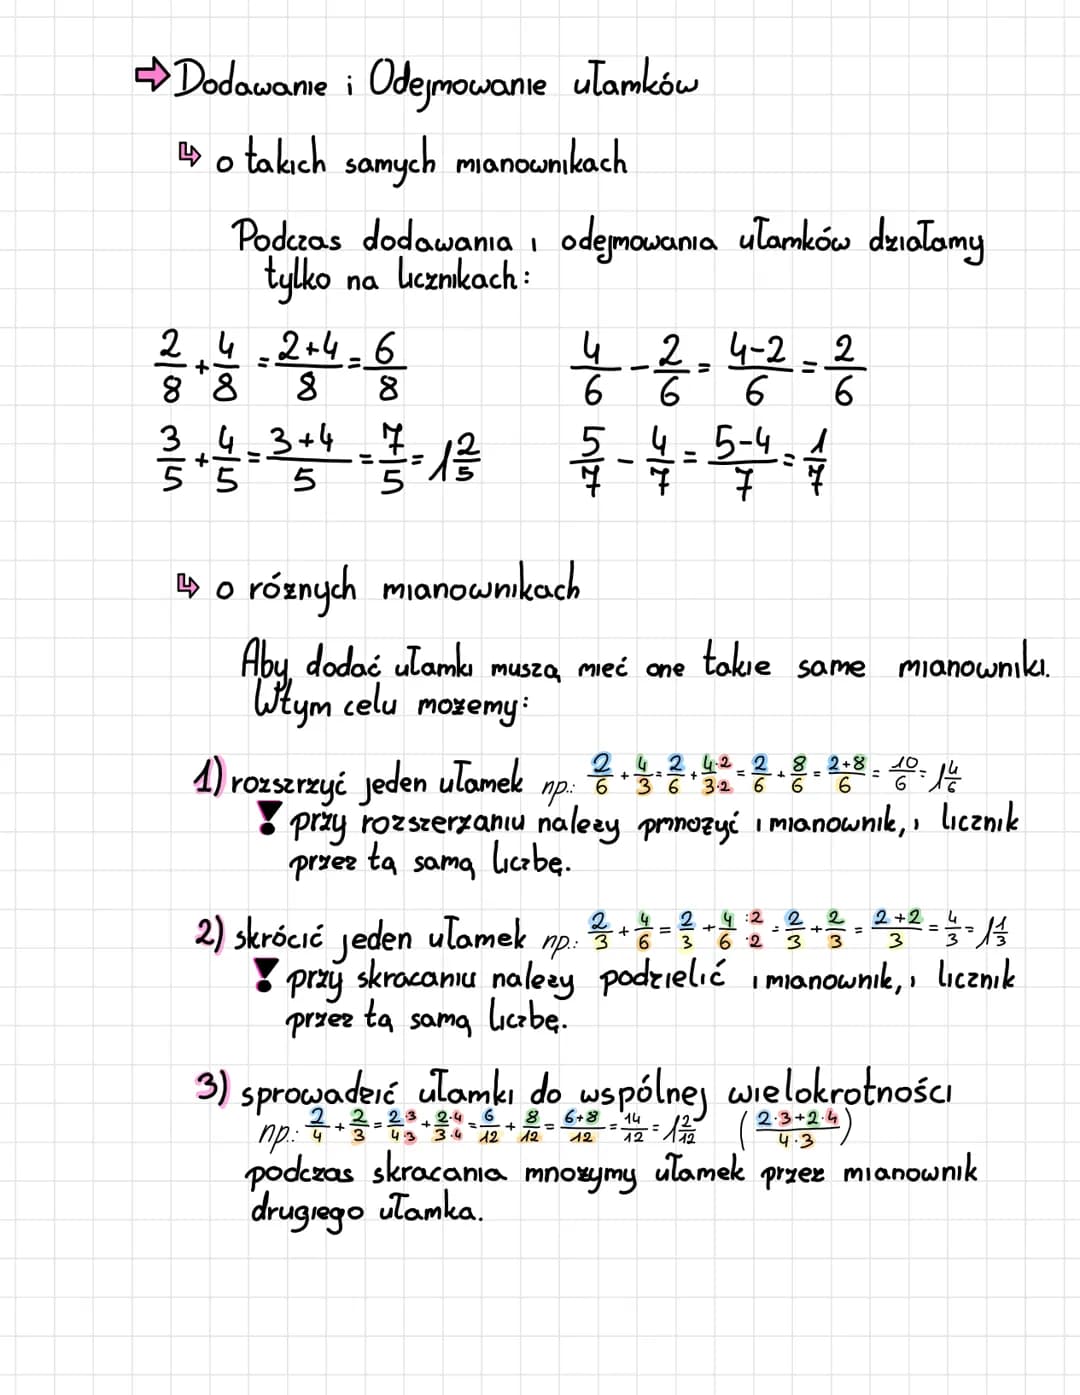 ⇨ Dodawanie i Odejmowanie ułamków
↳ o takich samych mianownikach
Podczas dodawania i odejmowania ułamków działamy
tylko na licznikach:
2/8 + 4/8 = (2+4)/8 = 6/8    4/6 - 2/6 = (4-2)/6 = 2/6
3/5 + 4/5 = (3+4)/5 = 7/5 = 1 2/5    5/7 - 4/7 = (5-4)/7 = 1/7
↳ o różnych mianownikach
Aby dodać ułamki muszą mieć one takie same mianowniki.
W tym celu możemy:
1) rozszrzyć jeden ułamek np.: 2/6 + 4/3 = 2/6 + (4·2)/(3·2) = 2/6 + 8/6 = (2+8)/6 = 10/6 = 1 4/6
! przy rozszerzaniu należy pmnożyć i mianownik, i licznik
przez tą samą liczbę.
2) skrócić jeden ułamek np.: 2/3 + 4/6 = 2/3 + (4:2)/(6:2) = 2/3 + 2/3 = (2+2)/3 = 4/3 = 1 1/3
! przy skracaniu należy podzielić i mianownik, i licznik
przez tą samą liczbę.
3) sprowadzić ułamki do wspólnej wielokrotności
np.: 2/4 + 2/3 = (2·3)/(4·3) + (2·4)/(3·4) = 6/12 + 8/12 = (6+8)/12 = 14/12 = 1 2/12 ((2·3+2·4)/(4·3))
podczas skracania mnożymy ułamek przez mianownik
drugiego ułamka.